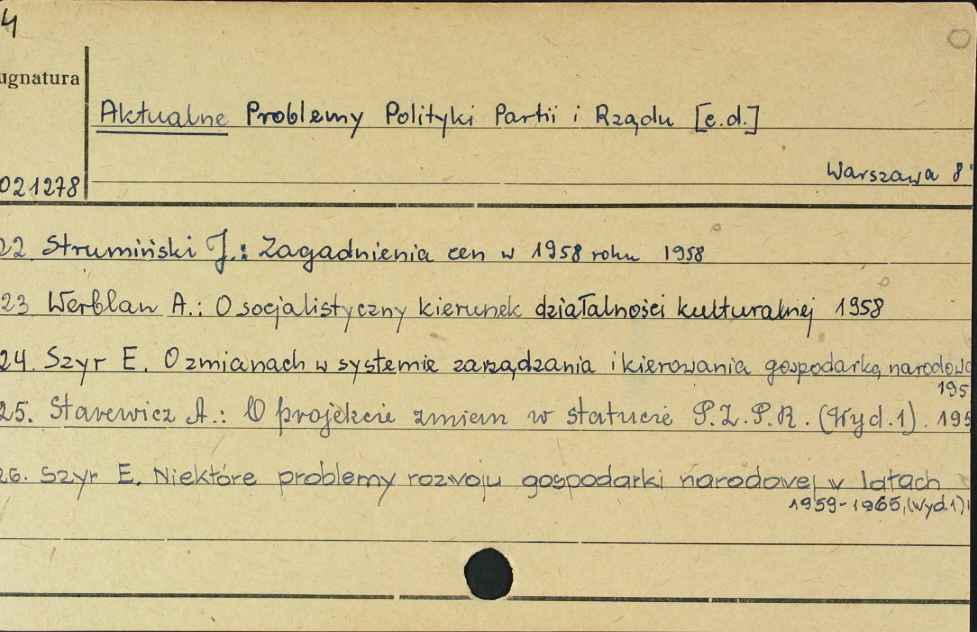 4
ygnatura
Aktualne Problemy Polityki Partii i Rządu [e.d.]
021278
Warszawa 8°
22. Strumiński J.: Zagadnienia cen w 1958 roku 1958
23 Werblan A.: O socjalistyczny kierunek działalności kulturalnej 1958
24. Szyr E. O zmianach w systemie zarządzania i kierowania gospodarką narodową
195
25. Starewicz A.: O projekcie zmian w statucie P.Z.P.R. (Wyd.1). 195
26. Szyr E. Niektóre problemy rozwoju gospodarki narodowej w latach
1959-1965, (wyd.1)